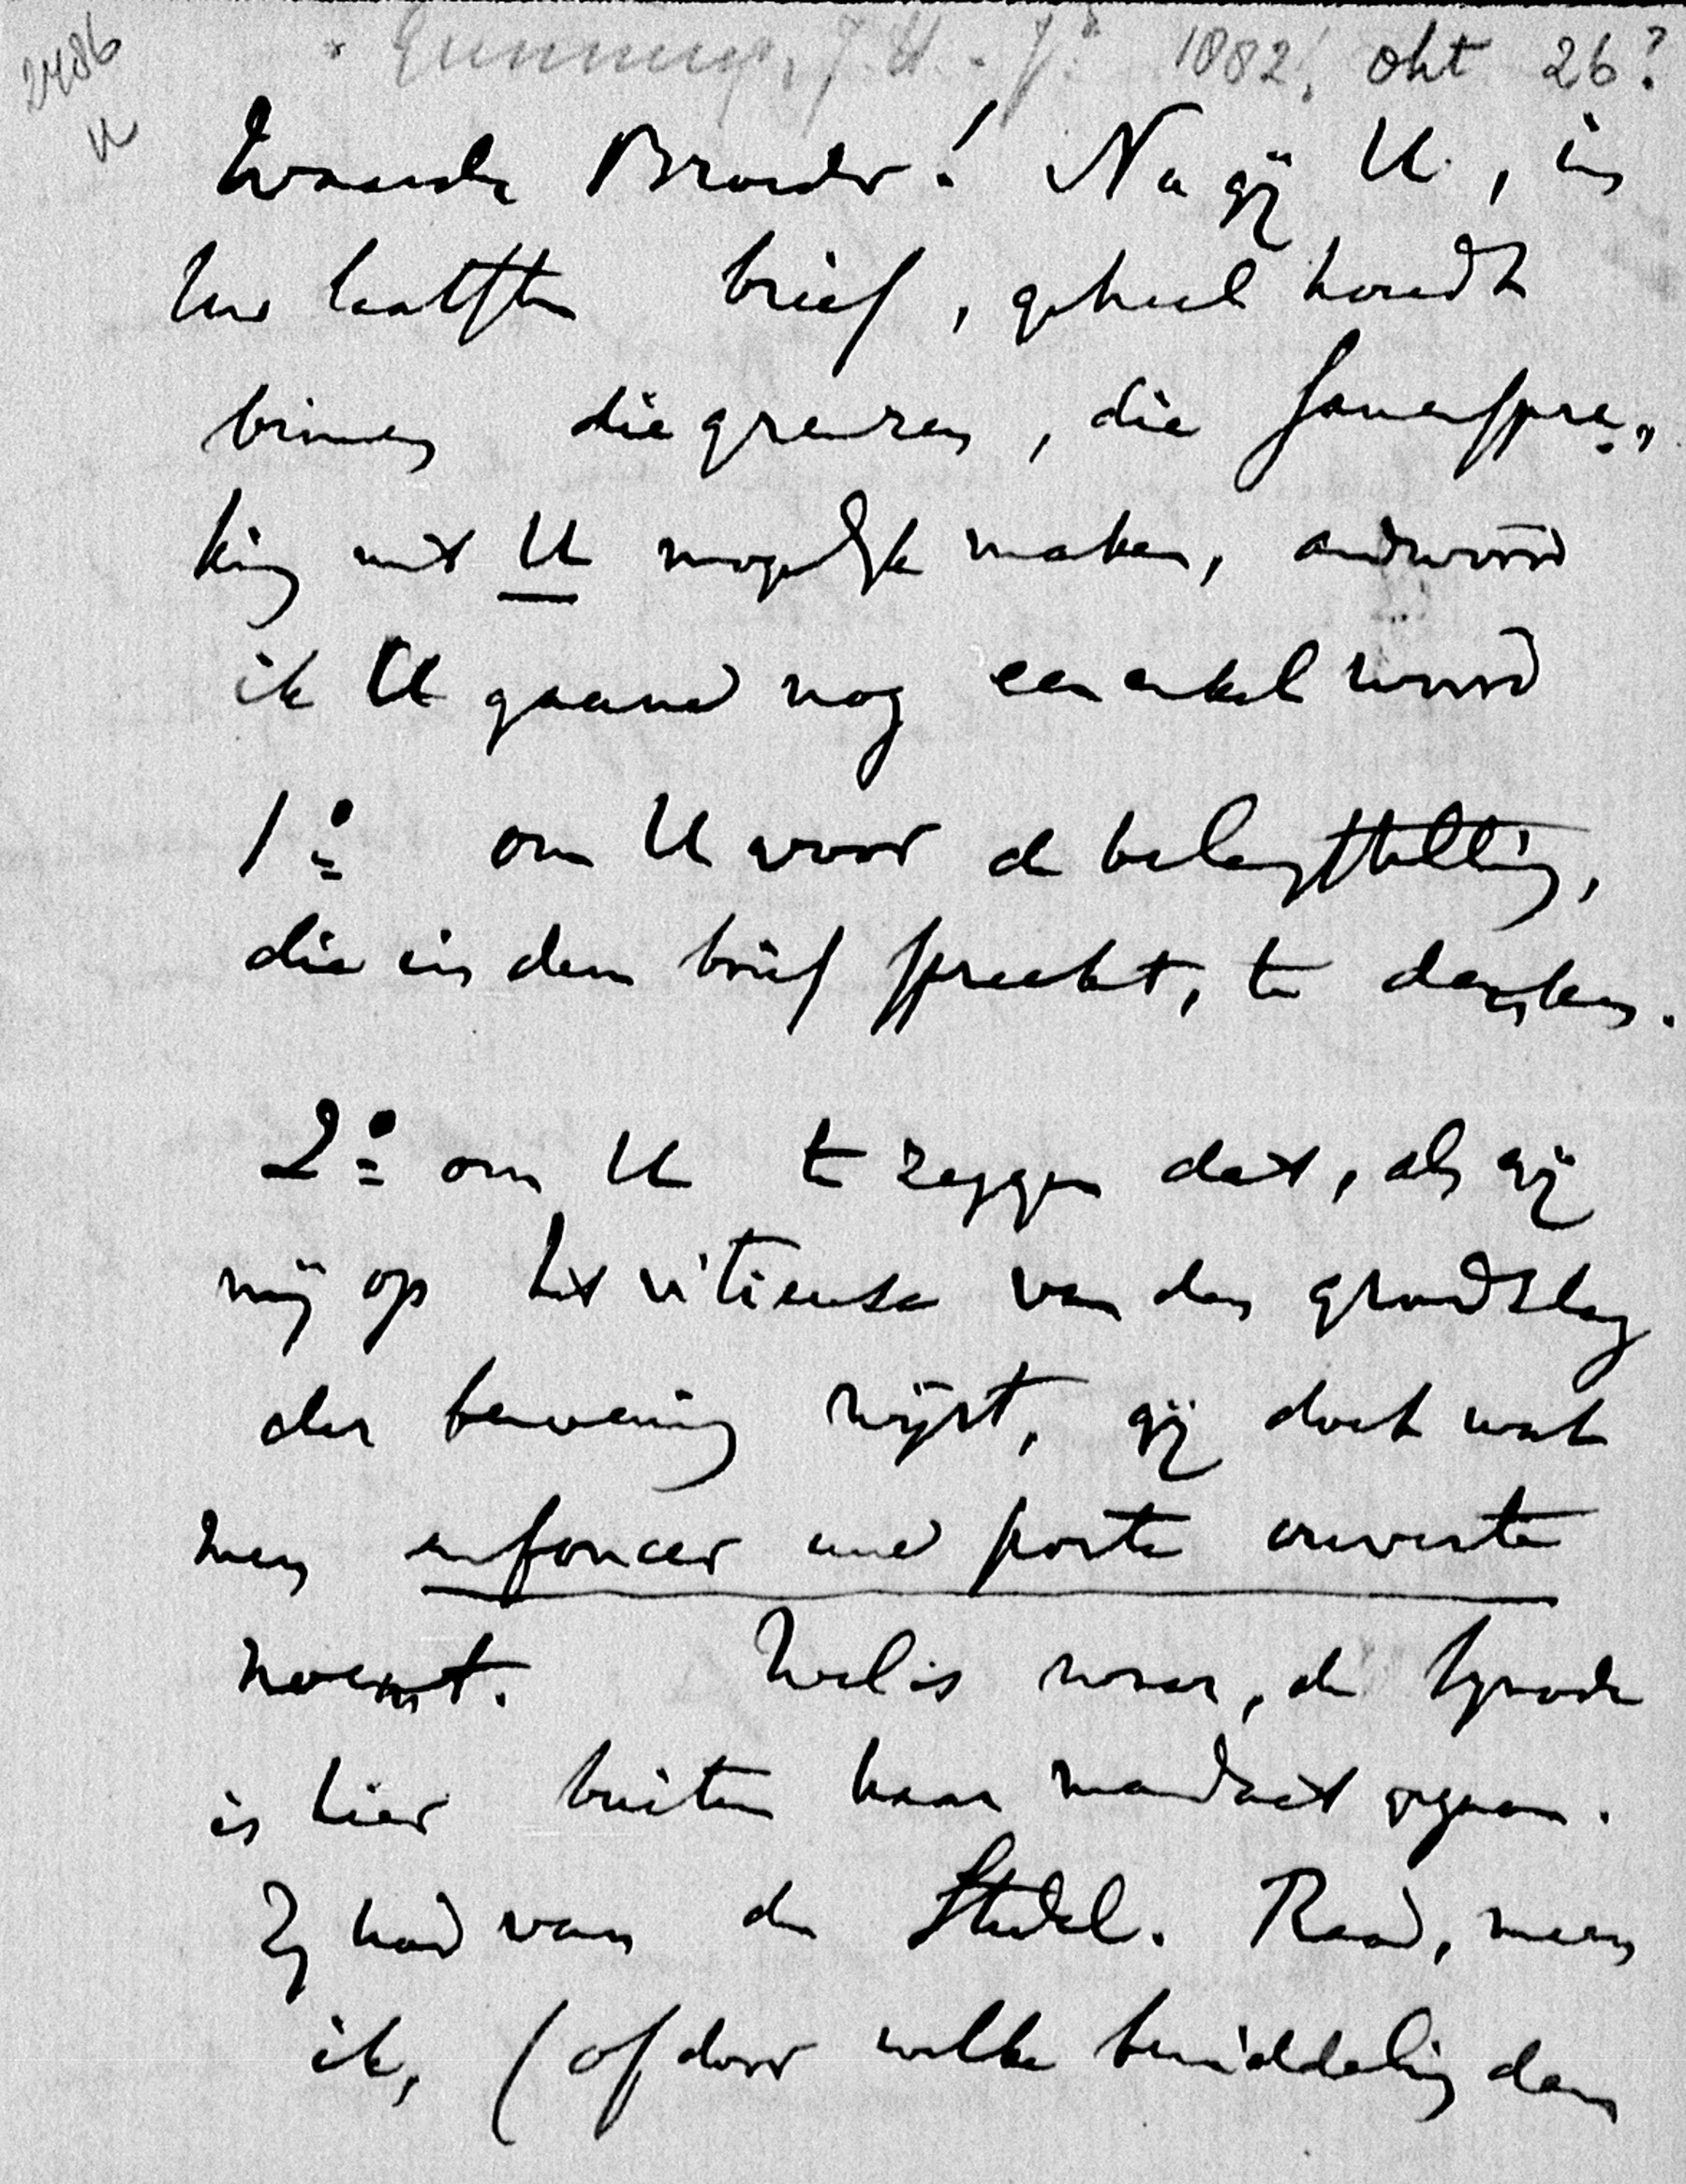 2486
Gunning, J.H. - Jr. 1882, okt 26?
Waarde Broeder! Nu gij U, in
Uw laatsten brief, geheel houdt
binnen die grenzen, die samenspre„
king met U mogelijk maken, andwoord
ik U gaarne nog een enkel woord
1o om U voor de belangstelling,
die in den brief spreekt, te danken.
2o om U te zeggen dat, als gij
mij op het vitieuse van den grondslag
der beweering wijst, gij doet wat
men enfoncer une porte ouverte
noemt. Wel is waar, de Synode
is hier buiten haar mandaat gegaan.
Zij had van de Stedel. Raad, meen
ik, (of door welke bemiddeling dan